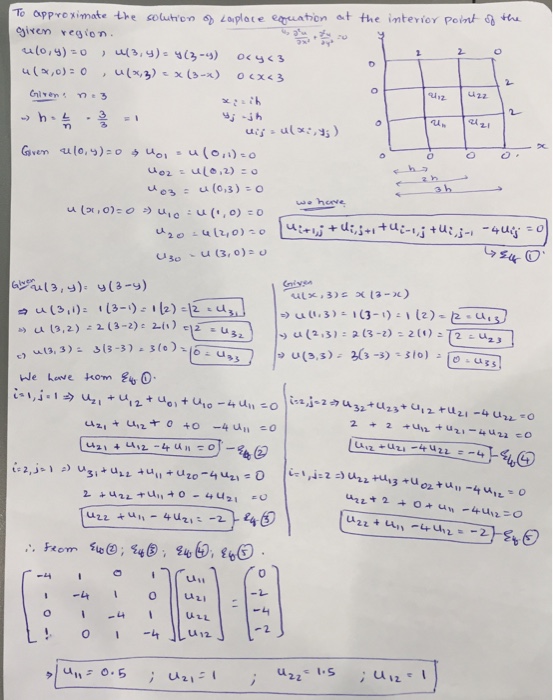 To approximate the solution of Laplace equation at the interior point of the
given region. ∂²u/∂x² + ∂²u/∂y² = 0
u(0,y)=0 , u(3,y) = y(3-y) 0<y<3
u(x,0)=0 , u(x,3) = x(3-x) 0<x<3
Given: n=3
→ h = L/n = 3/3 = 1
xi = ih
yj = jh
uij = u(xi, yj)
y
2 2 0
0 2
0 u12 u22 2
0 u11 u21
0 0 0 x
h
2h
3h
Given u(0,y)=0 ⇒ u01 = u(0,1)=0
u02 = u(0,2)=0
u03 = u(0,3)=0
u(x,0)=0 ⇒ u10 = u(1,0)=0
u20 = u(2,0)=0
u30 = u(3,0)=0
we have
ui+1,j + ui,j+1 + ui-1,j + ui,j-1 - 4uij = 0
↳ Eq ①
Given u(3,y) = y(3-y)
⇒ u(3,1) = 1(3-1) = 1(2) = 2 = u31
⇒ u(3,2) = 2(3-2) = 2(1) = 2 = u32
⇒ u(3,3) = 3(3-3) = 3(0) = 0 = u33
Given
u(x,3) = x(3-x)
⇒ u(1,3) = 1(3-1) = 1(2) = 2 = u13
⇒ u(2,3) = 2(3-2) = 2(1) = 2 = u23
⇒ u(3,3) = 3(3-3) = 3(0) = 0 = u33
We have from Eq ①.
i=1, j=1 ⇒ u21 + u12 + u01 + u10 - 4u11 = 0
u21 + u12 + 0 + 0 - 4u11 = 0
u21 + u12 - 4u11 = 0 - Eq ②
i=2, j=1 ⇒ u31 + u22 + u11 + u20 - 4u21 = 0
2 + u22 + u11 + 0 - 4u21 = 0
u22 + u11 - 4u21 = -2 - Eq ③
i=2, j=2 ⇒ u32 + u23 + u12 + u21 - 4u22 = 0
2 + 2 + u12 + u21 - 4u22 = 0
u12 + u21 - 4u22 = -4 - Eq ④
i=1, j=2 ⇒ u22 + u13 + u02 + u11 - 4u12 = 0
u22 + 2 + 0 + u11 - 4u12 = 0
u22 + u11 - 4u12 = -2 - Eq ⑤
∴ From Eq ②; Eq ③; Eq ④; Eq ⑤.
-4 1 0 1 u11 0
1 -4 1 0 u21 = -2
0 1 -4 1 u22 -4
1 0 1 -4 u12 -2
⇒ u11 = 0.5 ; u21 = 1 ; u22 = 1.5 ; u12 = 1